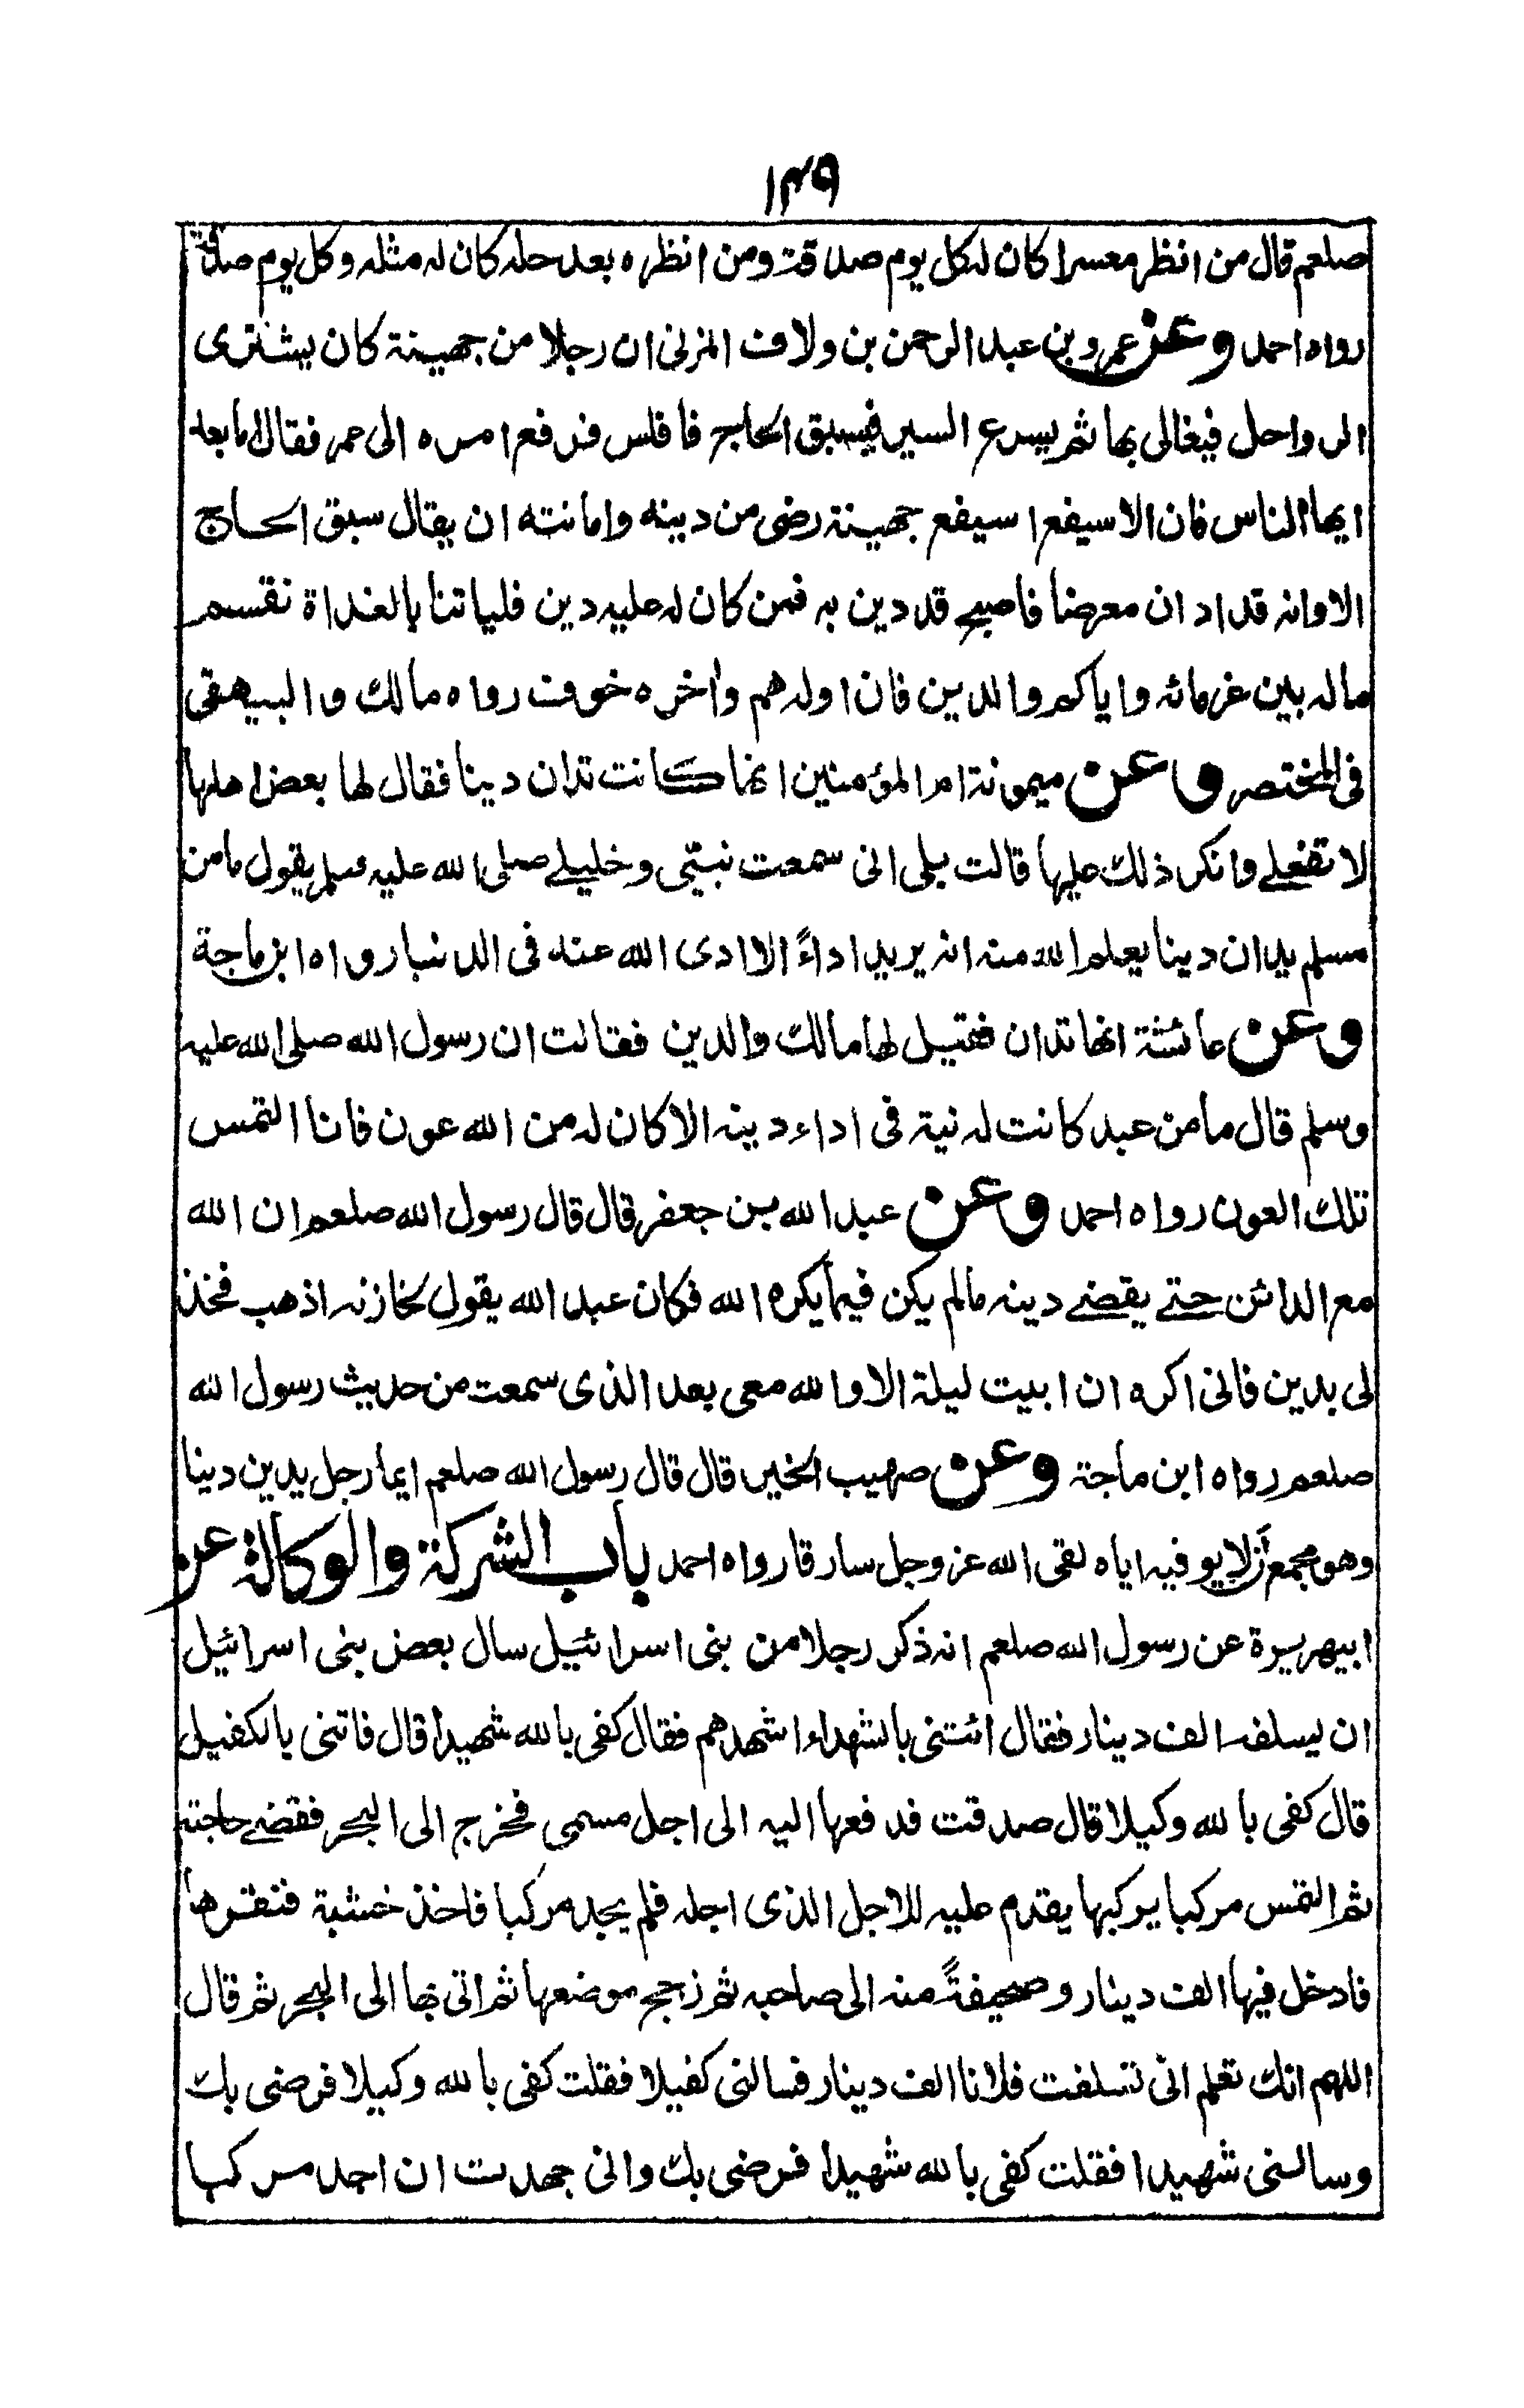 ١٣٩
صلعم قال من انظر معسرا كان له كل يوم صدقة ومن انظره بعد حله كان له مثله وكل يوم صدقة
رواه احمد وعن عمرو بن عبد الرحمن بن ولاف المزنى ان رجلا من جهينة كان يشترى
الرواحل فيغالى بها ثم يسرع السير فيسبق الحاج فافلس فرفع امره الى عمر فقال اما بعد
ايها الناس فان الاسيفع اسيفع جهينة رضى من دينه وامانته ان يقال سبق الحاج
الا وانه قد ادان معرضا فاصبح قد دين به فمن كان له عليه دين فلياتنا بالغداة نقسم
ماله بين غرمائه واياكم والدين فان اوله هم واخره خوف رواه مالك والبيهقى
فى المختصر وعن ميمونة ام المؤمنين انها كانت تدان دينا فقال لها بعض اهلها
لا تفعلے وانكر ذلك عليها قالت بلى انى سمعت نبيّى وخليلے صلى الله عليه وسلم يقول ما من
مسلم يدان دينا يعلم الله منه انه يريد اداءً الا ادى الله عنه فى الدنيا رواه ابن ماجة
وعن عائشة انها تدان فقيل لها مالك والدين فقالت ان رسول الله صلى الله عليه
وسلم قال ما من عبد كانت له نية فى اداء دينه الا كان له من الله عون فانا التمس
تلك العون رواه احمد وعن عبد الله بن جعفر قال قال رسول الله صلعم ان الله
مع الدائن حتے يقضے دينه مالم يكن فيما يكره الله فكان عبد الله يقول لخازنه اذهب فخذ
لى بدين فانى اكره ان ابيت ليلة الا والله معى بعد الذى سمعت من حديث رسول الله
صلعم رواه ابن ماجة وعن صهيب الخير قال قال رسول الله صلعم ايما رجل يدين دينا
وهو مجمع أن لا يوفيه اياه لقى الله عز وجل سارقا رواه احمد باب الشركة والوكالة عن
ابيهريرة عن رسول الله صلعم انه ذكر رجلا من بنى اسرائيل سال بعض بنى اسرائيل
ان يسلفه الف دينار فقال ائتنى بالشهداء اشهدهم فقال كفى بالله شهيدا قال فاتنى بالكفيل
قال كفى بالله وكيلا قال صدقت فدفعها اليه الى اجل مسمى فخرج الى البحر فقضے حاجته
ثم التمس مركبا يركبها يقدم عليه للاجل الذى اجله فلم يجد مركبا فاخذ خشبة فنقرها
فادخل فيها الف دينار وصحيفةً منه الى صاحبه ثم زجج موضعها ثم اتى بها الى البحر ثم قال
اللهم انك تعلم انّى تسلفت فلانا الف دينار فسالنى كفيلا فقلت كفى بالله وكيلا فرضى بك
وسالنى شهيدا فقلت كفى بالله شهيدا فرضى بك وانى جهدت ان اجد مركبا